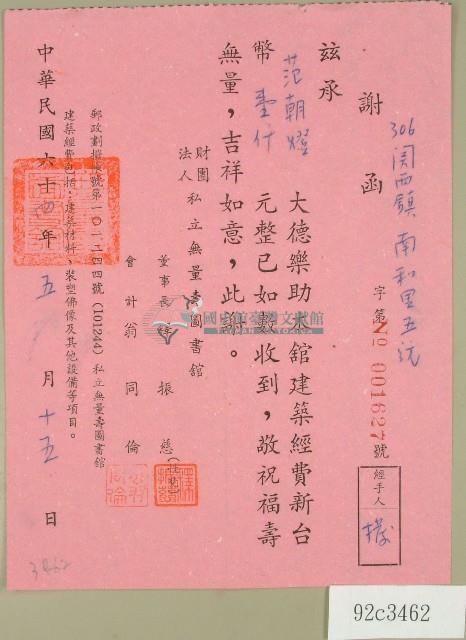 306 関西鎮南和里五沅
謝函
字第No 001627號
經手人
茲承
范朝燈 大德樂助本舘建築經費新台
幣 壹仟 元整已如數收到，敬祝福壽
無量，吉祥如意，此謝。
財團法人私立無量壽圖書館
董事長 振慈
會計翁同倫
郵政劃撥帳號第一〇一二四四號(101244)私立無量壽圖書館
建築經費包括：建築材料、裝塑佛像及其他設備等項目。
中華民國六十 年 五 月 十五 日
國立臺灣文獻館
3462
92c3462